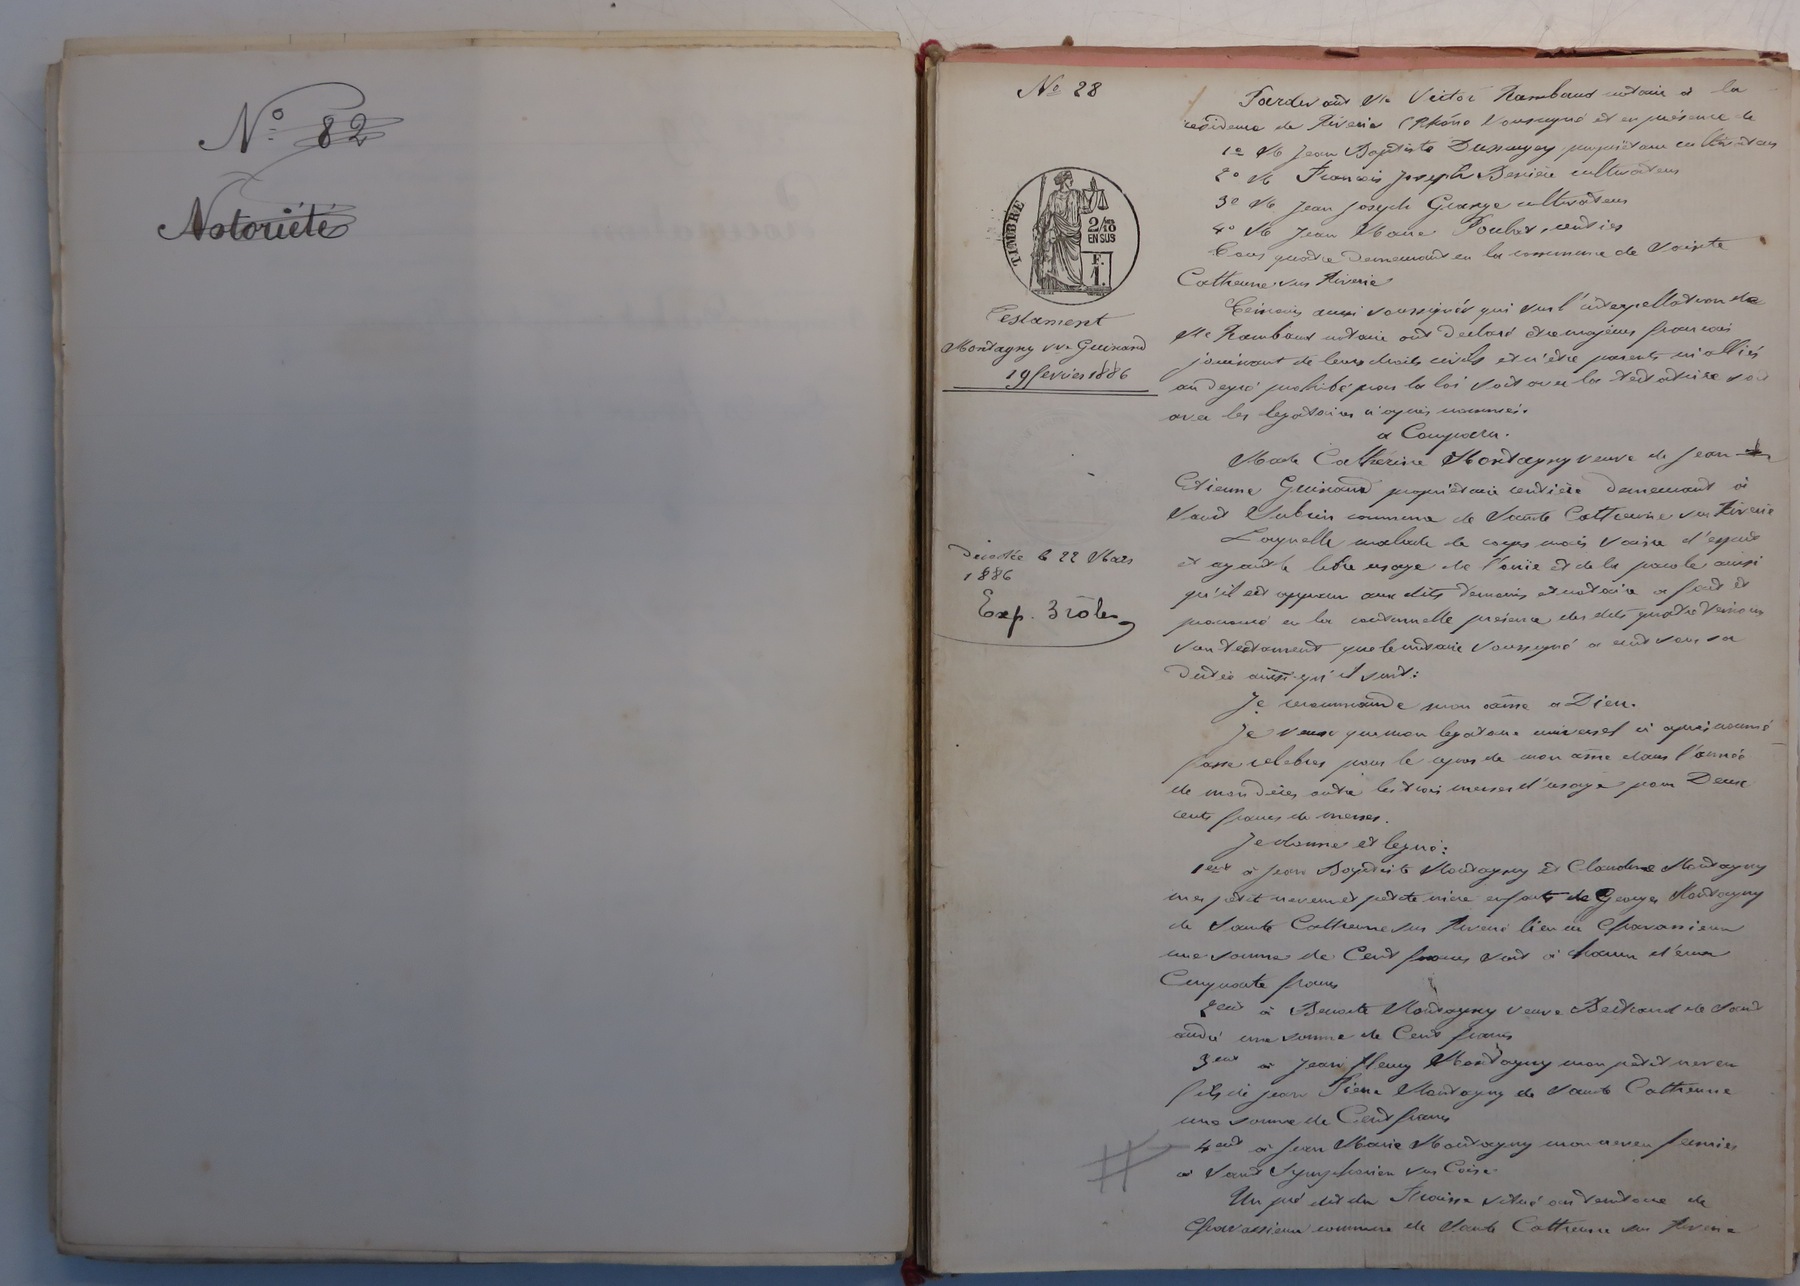 N° 82
Notoriété
N° 28
TIMBRE
2/10
EN SUS
F.
1.
Testament
Montagny vve Guinand
19 fevrier 1886
Décédée le 22 Mars
1886
Exp. 3 rôles
Pardevant Me Victor Rambaud notaire à la
résidence de Riverie (Rhône soussigné et en présence de
1° Mr Jean Baptiste Dussurgey propriétaire cultivateur
2° Mr François Joseph cultivateur
3° Mr Jean Joseph Grange cultivateur
4° Mr Jean Marie rentier
Tous quatre demeurant en la commune de Sainte
Catherine sur Riverie
Témoins aussi soussignés qui sur l'interpellation de
Me Rambaud notaire ont declaré être majeurs français
jouissant de leurs droits civils et n'être parents ni alliés
au degré prohibé par la loi soit avec la testatrice soit
avec les legataires ci après nommés.
a Comparu.
Made Catherine Montagny veuve de Jean
Etienne Guinand propriétaire rentière demeurant à
commune de Sainte Catherine sur Riverie
Laquelle malade de corps mais saine d'esprit
et ayant le libre usage de l'ouie et de la parole ainsi
qu'il est apparu aux dits témoins et notaire a fait et
prononcé en la continuelle présence des dits quatre témoins
son testament que le notaire soussigné a écrit sous sa
dictée ainsi qu'il suit:
Je recommande mon âme a Dieu.
Je veux que mon legataire universel ci après nommé
fasse celebrer pour le repos de mon âme dans l'année
de mon décès outre les trois messes d'usage pour Deux
cents francs de messes.
Je donne et legue:
1ent à Jean Baptiste Montagny et Claudine Montagny
mes petit neveu et petite nièce enfants de Georges Montagny
de Sainte Catherine sur Riverie lieu de Chavassieux
une somme de Cent francs soit à chacun d'eux
Cinquante francs
2ent à Benoite Montagny veuve Bertrand de Saint
andré une somme de Cent francs
3ent à Jean Fleury Montagny mon petit neveu
fils de Jean Pierre Montagny de Sainte Catherine
une somme de Cent francs
4ent à Jean Marie Montagny mon neveu fermier
à Saint Symphorien sur Coise
Un pré dit du situé au territoire de
Chavassieux commune de Sainte Catherine sur Riverie